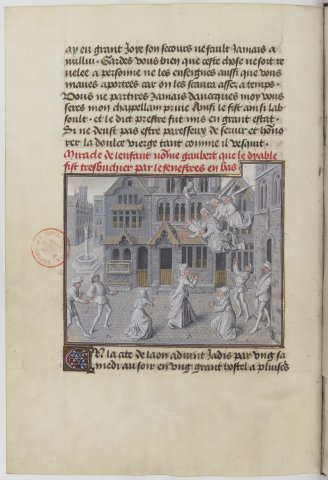 ay eu grant Joye son secours ne fault Jamais a
nulluy. Gardes vous bien que ceste chose ne soit re
uelee a personne ne les enseignes aussi que vous
maues aportees car on les scaura asses a temps.
Vous ne partires Jamais dauecques moy vous
seres mon chappellain priue Ainsi le fist ainsi lab
soult. et le dit prestre fut mis en grant estat.
Si ne doiust pas estre paresseux de seruir et hono
rer la doulce vierge tant comme il vesquit.
Miracle de lenfant nomme gaubert que le dyable
fist tresbucher par le fenestres en bas
En la cite de laon aduint Jadis par vng sa
medi au soir en vng grant hostel a pluises